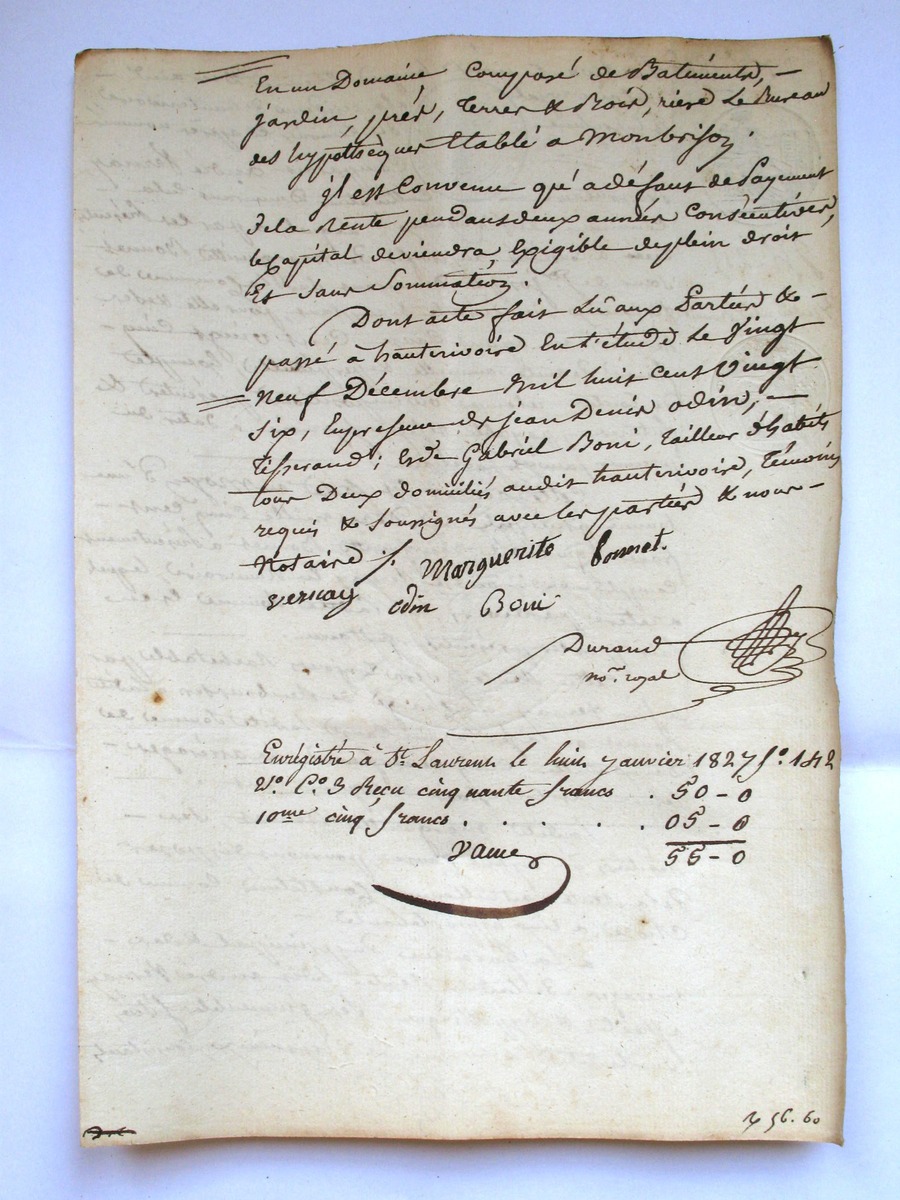 En un Domaine, Composé de Batiments, -
jardin, prés, Terres & Bois, rière Le Bureau
des hypothèques Etablé a Monbrison.
jl est Convenu qu'a défaut de Payement
De la Rente pendant deux années Consécutives,
le Capital deviendra, Exigible de plein droit,
Et sans Sommation.
Dont acte fait Lû aux Parties & -
passé à hauterivoire En L'étude Le Vingt
Neuf Décembre Mil huit cent Vingt
Six, En presence de jean Denis odin, -
Tisserand; Et de Gabriel Boni, Tailleur d'habits
tous Deux domiciliés audit hauterivoire, Témoins
requis & Soussignés avec les parties & nous -
Notaire ./. Marguerite bonnet.
vernay odin Boni
Durand
no.re royal
Enrégistré à St. Laurent le huit janvier 1827 fo. 142
Vo. Co. 3 Reçu cinquante francs . 50 - 0
10eme cinq francs . . . . . 05 - 0
55 - 0
56. 60